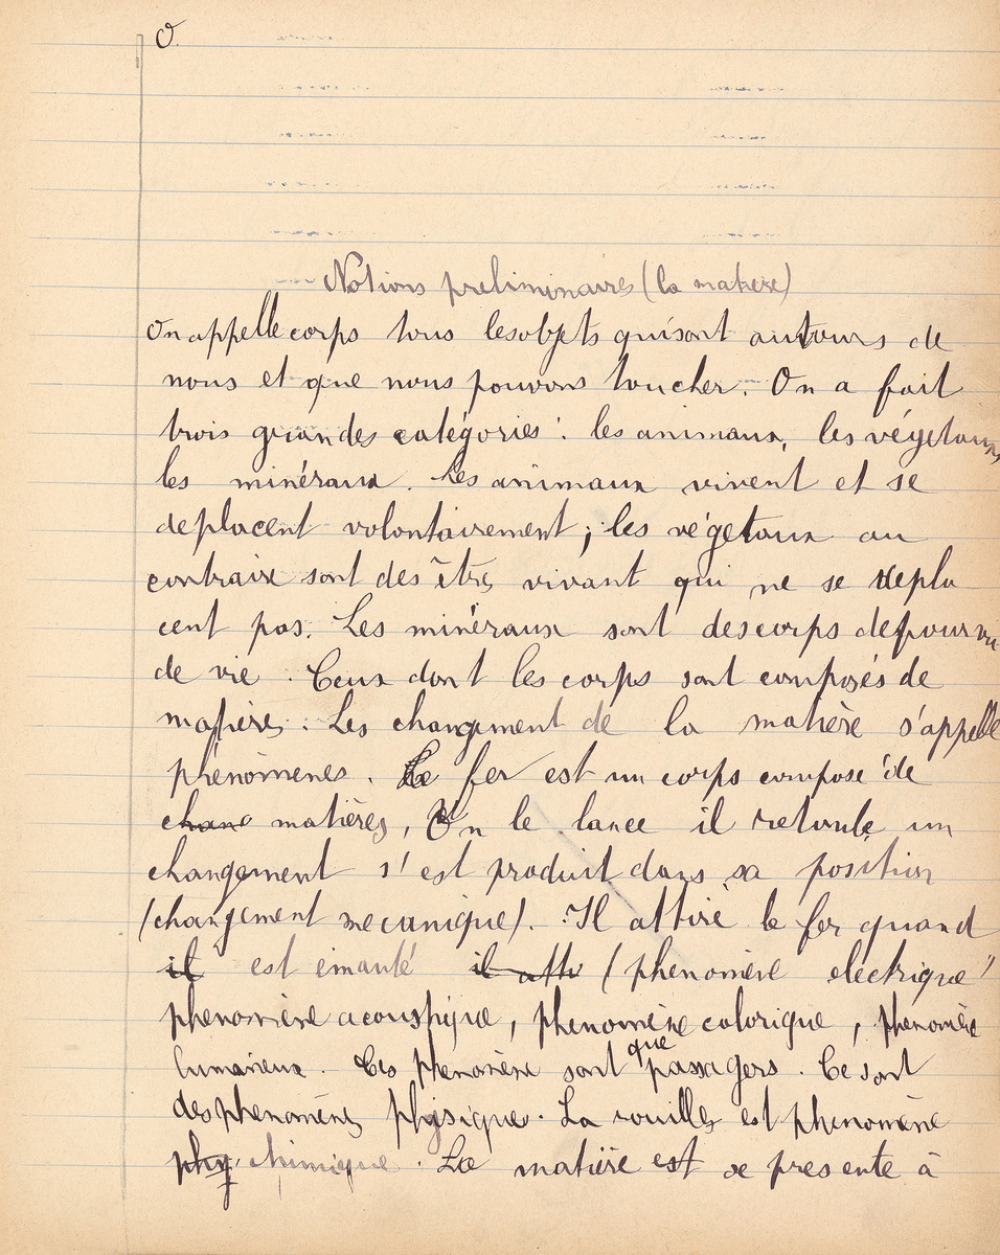 O.
Notions preliminaires (la matiere)
On appelle corps tous lesobjets quisont autours de
nous et que nous pouvons toucher. On a fait
trois grandes catégories : les animaux, les végetaux,
les minéraux. Les animaux vivent et se
deplacent volontairement ; les végetaux au
contraire sont des êtres vivant qui ne se depla
cent pas. Les minéraux sont descorps depourvu
de vie. Ceux dont les corps sont composés de
matières. Les changement de la matière s'appelle
phénomènes. Le fer est un corps compose de
chan matières, On le lance il retombe un
changement s'est produit dans sa position
(changement mecanique). Il attire le fer quand
il est émanté il atti (phenomène electrique)
phenomène acoustique, phenomène calorique, phenomène
lumineux. Ces phenomène sont que passagers. Ce sont
desphenomènes physiques. La rouilles est phenomène
phy chimique. La matière est se presente à